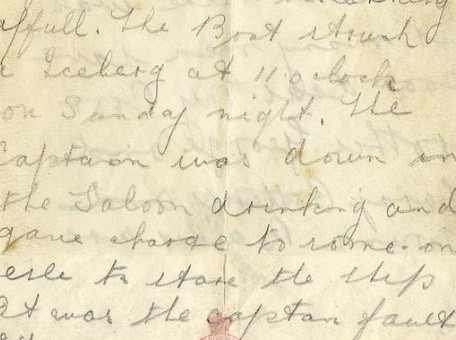 affull. The Boat struck
a Iceberg at 11 o clock
on Sunday night. The
Captain was down in
the Saloon drinking and
gave charge to some on
esle to stare the ship
It was the captan fault